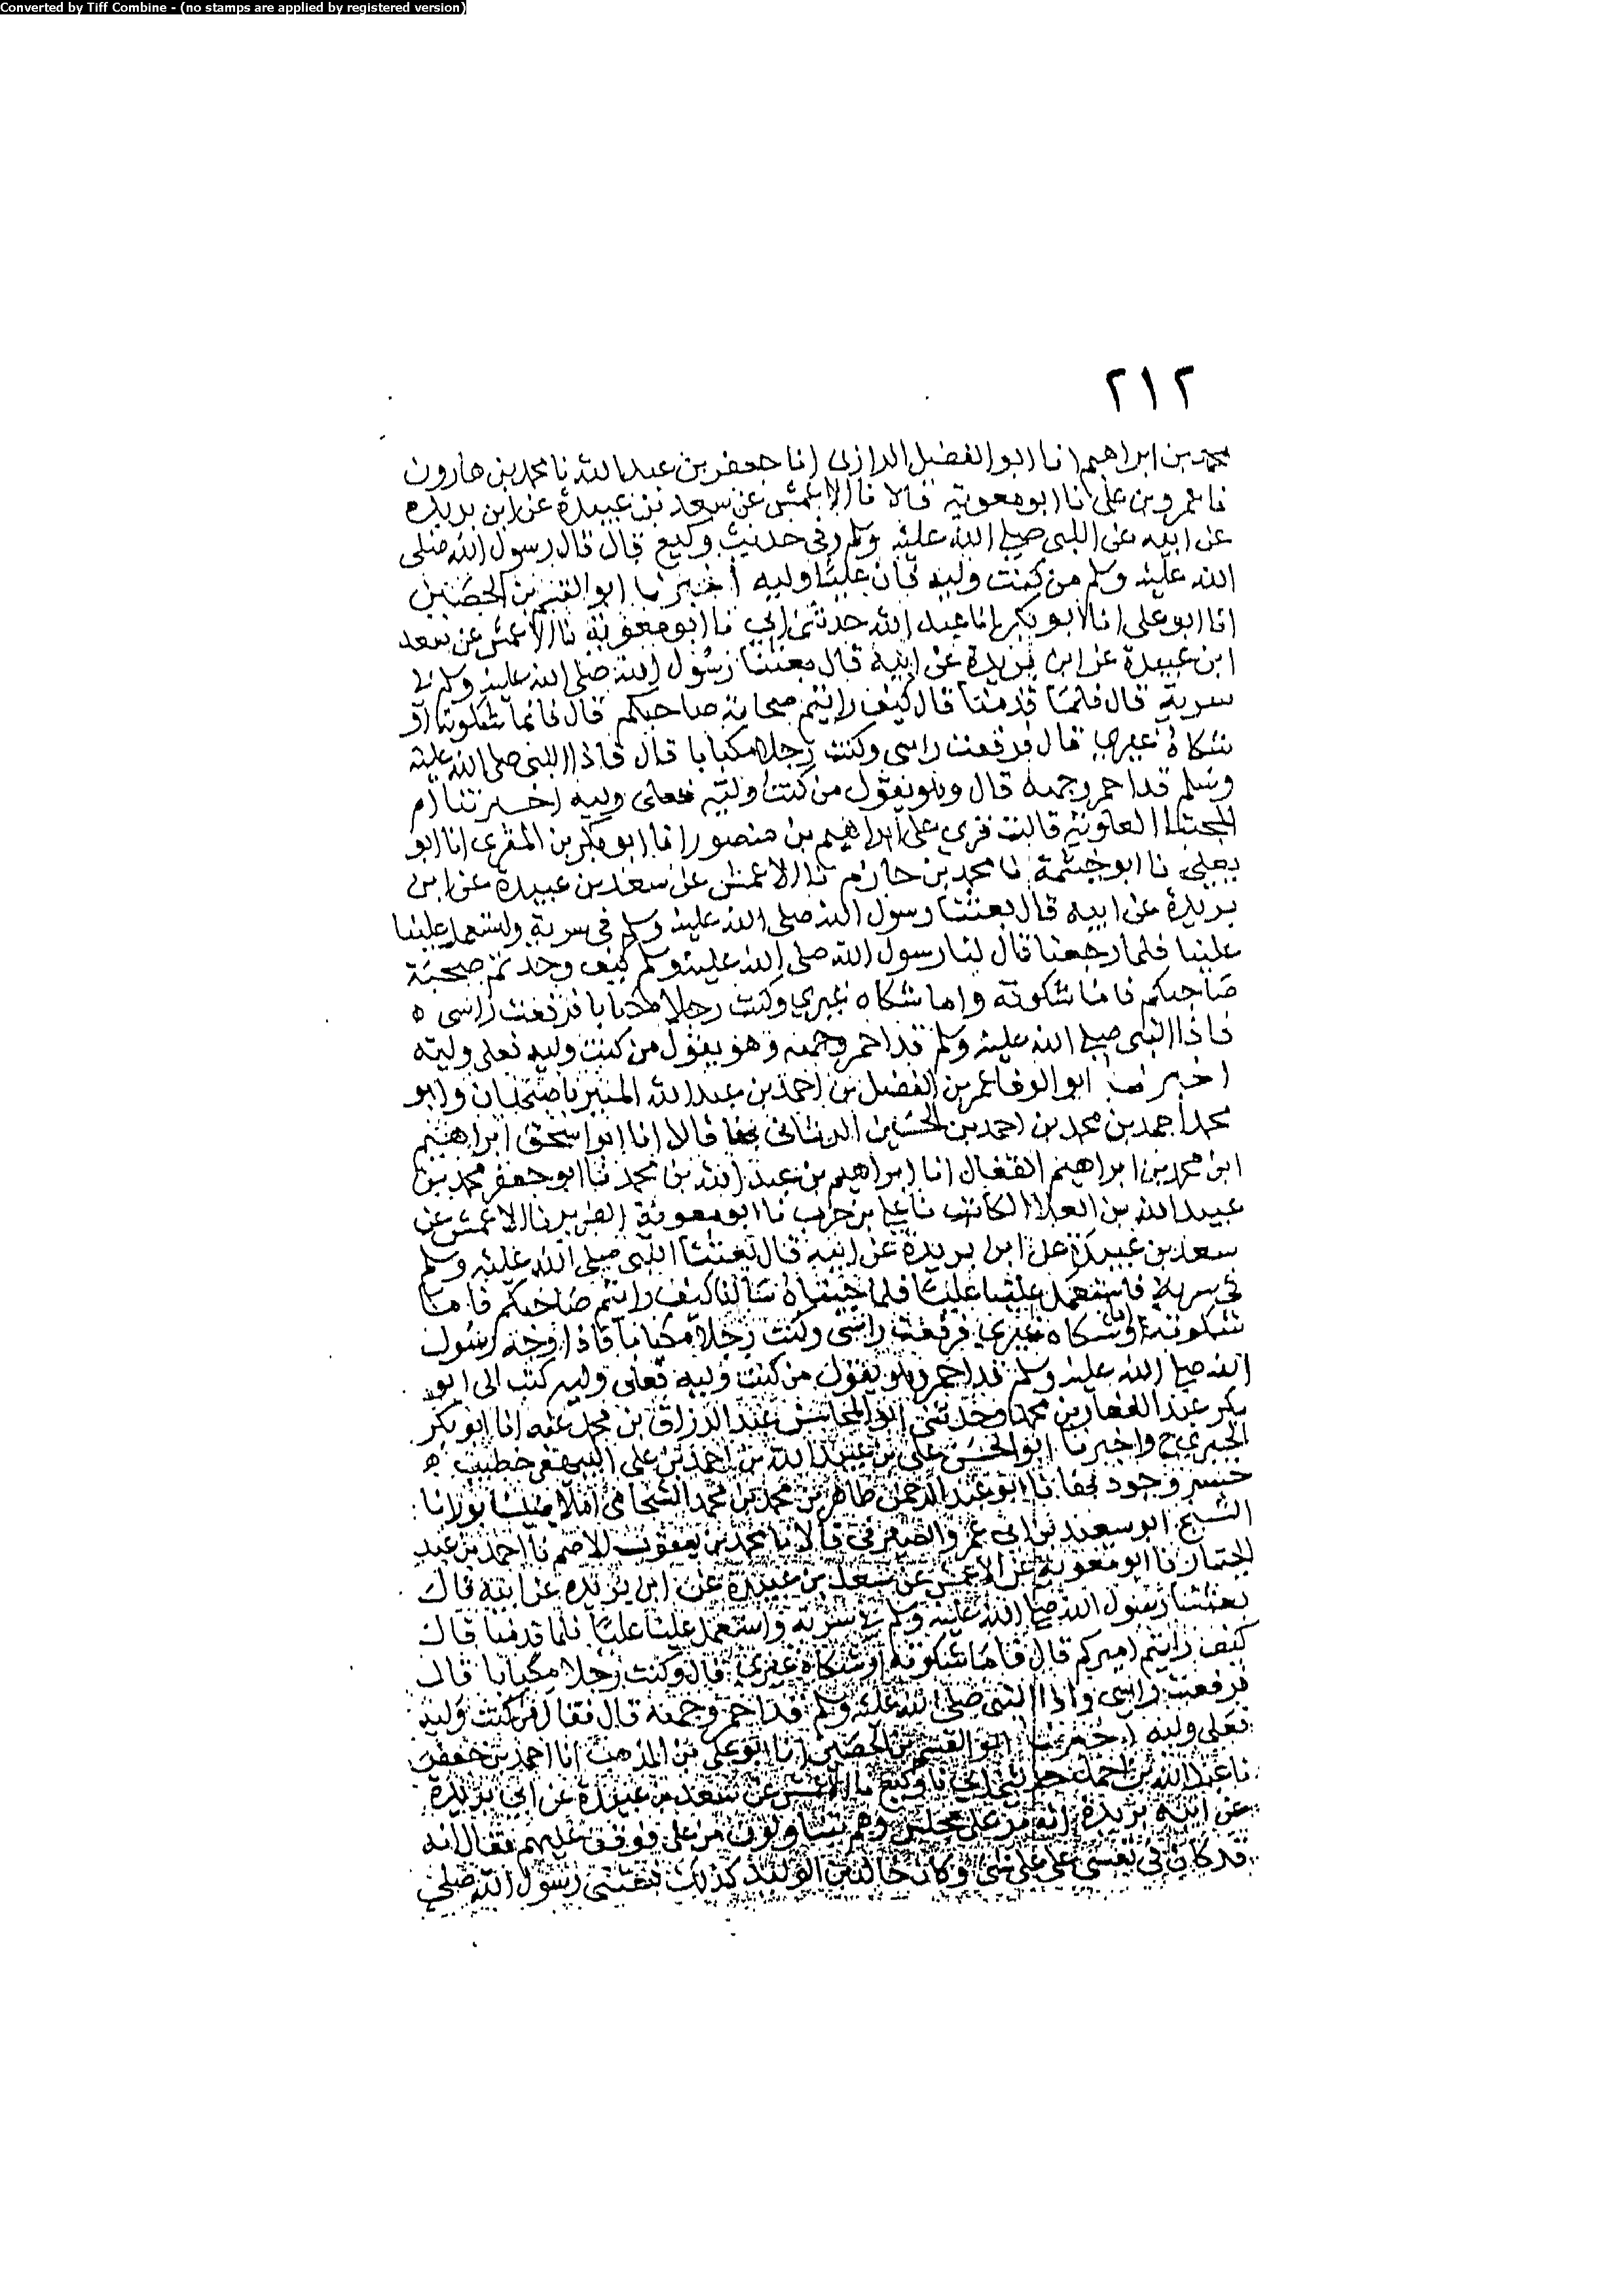 Converted by Tiff Combine - (no stamps are applied by registered version)
٢١٢
محمد بن ابراهيم انا ابو الفضل الرازى انا جعفر بن عبد الله نا محمد بن هارون
نا عمرو بن على نا ابو معوية قالا نا الاعمش عن سعد بن عبيدة عن ابن بريده
عن ابيه عن النبى صلى الله عليه وسلم وفى حديث وكيع قال قال رسول الله صلى
الله عليه وسلم من كنت وليه فان عليا وليه اخبرنا ابو القسم بن الحصين
انا ابو على انا ابو بكر انا عبد الله حدثنى ابي نا ابو معوية نا الاعمش عن سعد
ابن عبيدة عن ابن بريدة عن ابيه قال بعثنا رسول الله صلى الله عليه وسلم فى
سرية قال فلما قدمنا قال كيف رايتم صحابة صاحبكم قال فانما شكوته او
شكاه غيري قال فرفعت راسى وكنت رجلا مكبابا قال فاذا النبى صلى الله عليه
وسلم قد احمر وجهه قال وهو يقول من كنت وليه فعلى وليه اخبرتنا ام
المجتبا العلوية قالت قرى على ابراهيم بن منصور انا ابو بكر بن المقرى انا ابو
يعلى نا ابو خيثمة نا محمد بن حازم نا الاعمش عن سعد بن عبيدة عن ابن
بريدة عن ابيه قال بعثنا رسول الله صلى الله عليه وسلم فى سرية واستعمل علينا
علينا فلما رجعنا قال لنا رسول الله صلى الله عليه وسلم كيف وجدتم صحبة
صاحبكم فاما شكوته واما شكاه غيري وكنت رجلا مكبابا فرفعت راسى ه
فاذا النبى صلى الله عليه وسلم قد احمر وجهه وهو يقول من كنت وليه فعلى وليه
اخبرنا ابو الوفا عمر بن الفضل بن احمد بن عبد الله المميز باصبهان وابو
محمد احمد بن محمد بن احمد بن الحسين بها قالا انا ابو اسحق ابراهيم
ابن محمد بن ابراهيم القفال انا ابراهيم بن عبد الله بن محمد نا ابو جعفر محمد بن
عبيد الله بن العلا الكاتب نا على بن حرب نا ابو معوية الضرير نا الاعمش عن
سعد بن عبيدة عن ابن بريدة عن ابيه قال بعثنا النبى صلى الله عليه وسلم
فى سرية فاستعمل علينا عليا فلما جيناه سالنا كيف رايتم صاحبكم فاما
شكوته او شكاه غيري فرفعت راسى وكنت رجلا مكبابا فاذا وجه رسول
الله صلى الله عليه وسلم قد احمر وهو يقول من كنت وليه فعلى وليه كتب الى ابو
بكر عبد الغفار بن محمد وحدثنى ابو المحاسن عبد الرزاق بن محمد عنه انا ابو بكر
الحيري ح واخبرنا ابو الحسن على بن عبيد الله بن احمد بن على البيهقى خطيب
خسروجرد بها نا ابو عبد الرحمن طاهر بن محمد بن محمد الشحامى املا بنيسابور انا
الشيخ ابو سعيد بن ابى عمرو الصيرفى قالا نا محمد بن يعقوب الاصم نا احمد بن عبد
الجبار نا ابو معوية عن الاعمش عن سعد بن عبيدة عن ابن بريده عن ابيه قال
بعثنا رسول الله صلى الله عليه وسلم فى سرية واستعمل علينا عليا فلما قدمنا قال
كيف رايتم اميركم قال فاما شكوته او شكاه غيري قال وكنت رجلا مكبابا قال
فرفعت راسى واذا النبى صلى الله عليه وسلم قد احمر وجهه قال فقال من كنت وليه
فعلى وليه اخبرنا ابو القسم بن الحصين انا ابو على بن المذهب انا احمد بن جعفر
نا عبد الله بن احمد حدثنى ابي نا وكيع نا الاعمش عن سعد بن عبيدة عن ابن بريدة
عن ابيه بريدة انه مر على مجلس وهم يتناولون من على فوقف عليهم فقال انه
قد كان فى نفسى على على شى وكان خالد بن الوليد كذلك فبعثنى رسول الله صلى